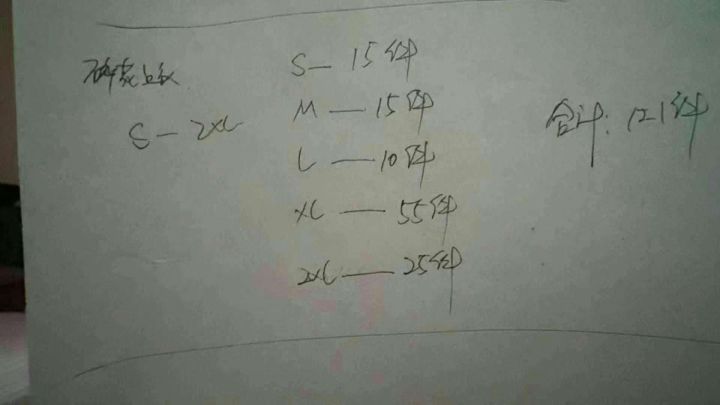 S — 2XL
S — 15件
M — 15件
L — 10件
XL — 55件
2XL — 25件
合计: 121件